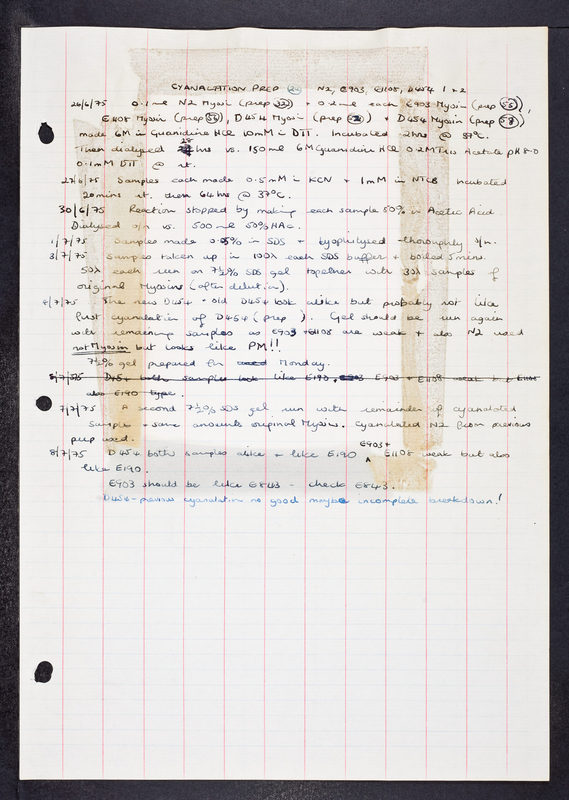 CYANALATION PREP N2, E903, E1108, D454 1 + 2
26/6/75 0.1ml N2 Myosin (prep 22) + 0.2ml each E903 Myosin (prep 55),
E1108 Myosin (prep 56), D454 Myosin (prep) + D454 Myosin (prep 58)
made 6M in Guanidine HCl 10mM in DTT. Incubated 2hrs @ 37°C.
Then dialysed 28 hrs vs. 150ml 6M Guanidine HCl 0.2M Tris Acetate pH 8.0
0.1mM DTT @ rt.
27/6/75 Samples each made 0.5M in KCN + 1mM in NTCB Incubated
20mins rt. then 64hrs @ 37°C.
30/6/75 Reaction stopped by making each sample 50% in Acetic Acid
Dialysed o/n vs. 500ml 50% HAc.
1/7/75 Samples made 0.05% in SDS + lyophilysed thoroughly o/n.
3/7/75 Samples taken up in 100λ each SDS buffer + boiled 5mins.
50λ each run on 7½% SDS gel together with 30λ samples of
original Myosins (after dilution).
4/7/75 The new D454 + old D454 look alike but probably not like
first cyanalation of D454 (prep ). Gel should be run again
with remaining samples as E903 + E1108 are weak + also N2 used
not Myosin but looks like PM!!
7½% gel prepared for Monday.
8/7/75 D454 both samples look like E190, E903 + E1108 weak but
also E190 type.
7/7/75 A second 7½% SDS gel run with remainder of cyanalated
Sample + same amounts original Myosins. Cyanalated N2 from previous
prep used.
8/7/75 D454 both samples alike + like E190 E903 + E1108 weak but also
like E190.
E903 should be like E843 - check E843.
D454 - previous cyanalation no good maybe incomplete breakdown!